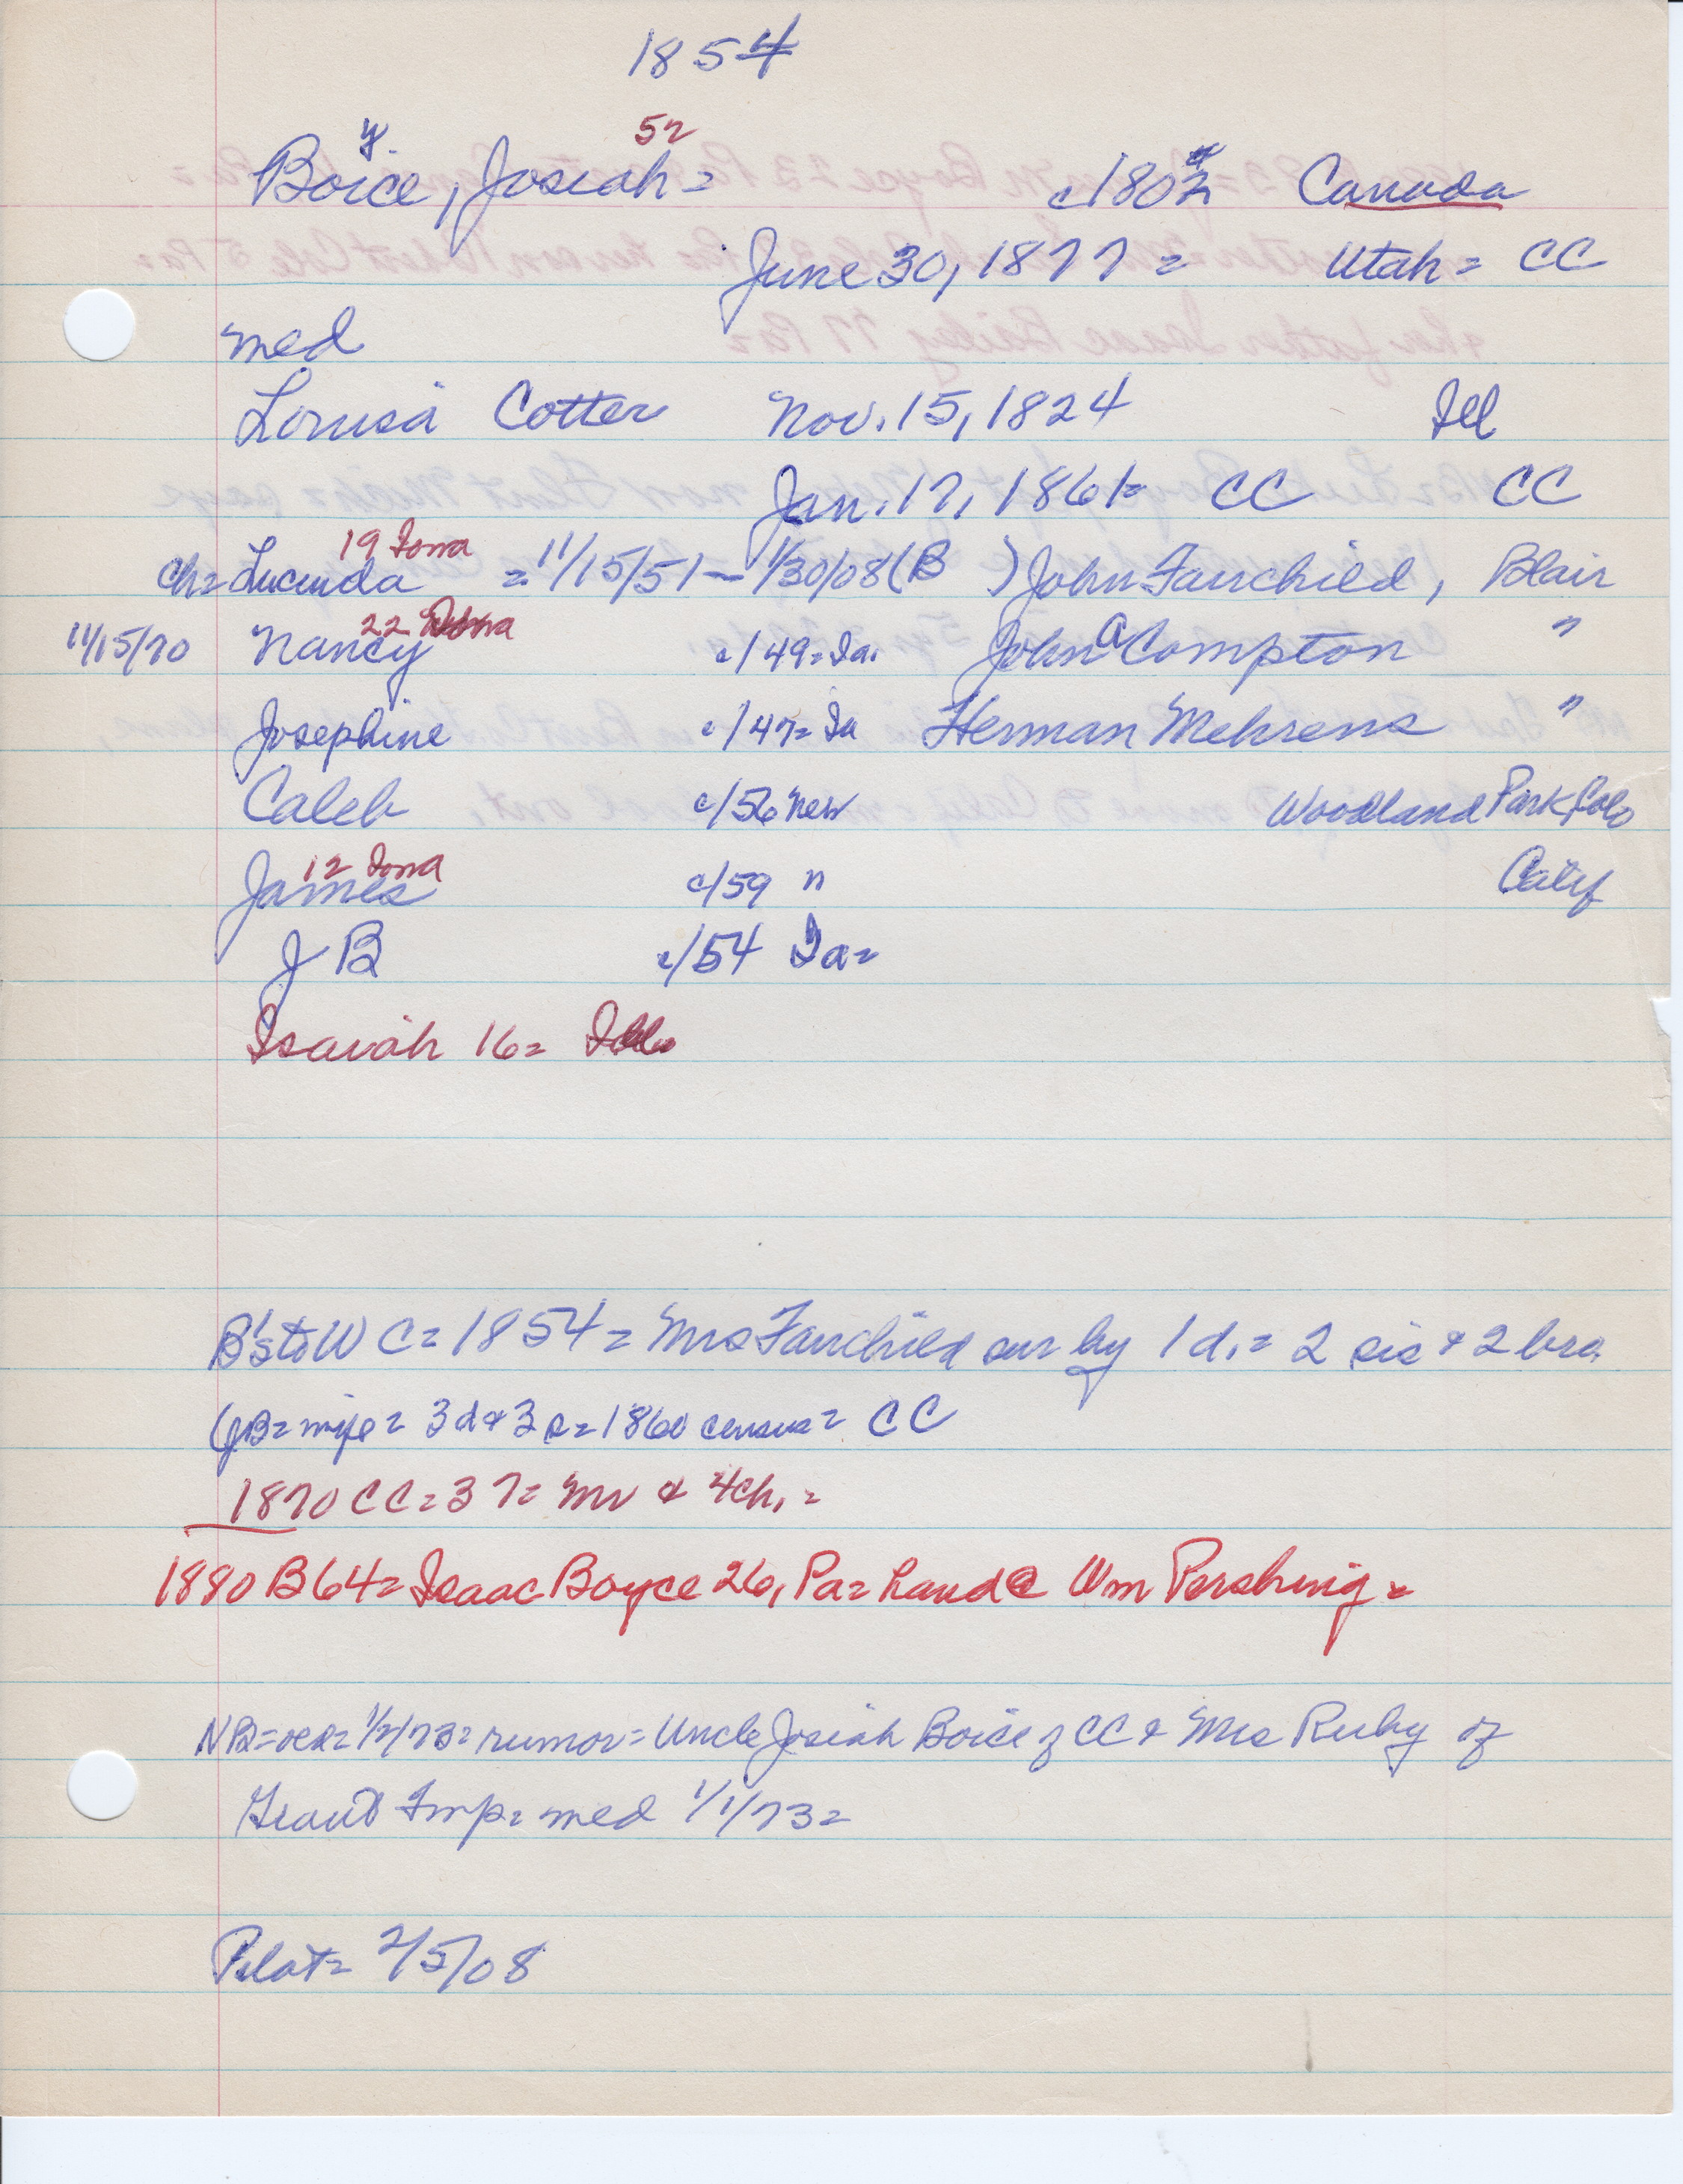 1854
y. 52
Boice, Josiah = c/1802 Canada
June 30, 1877 = Utah = CC
med
Louisa Cotter Nov. 15, 1824 Ill
Jan. 17, 1861= CC CC
19 Iowa
ch= Lucinda = 11/15/51 — 1/30/08 (B ) John Fairchild, Blair
22 Iowa
11/15/70 Nancy c/49= Ia. John A Compton "
Josephine c/47= Ia Herman Mehrens "
Caleb c/56 New Woodland Park, Colo
12 Iowa
James c/59 n Calif
J B c/54 Ia=
Isaiah 16=
B's to W C = 1854 = Mrs Fairchild sur by 1 d. = 2 sis & 2 bro.
(JB= wife = 3 d & 3 s = 1860 census = CC
1870 CC = 37 = Mr & 4 ch. =
1880 B 64 = Isaac Boyce 26, Pa = hand @ Wm Pershing =
NB = 1/2/73 = rumor = Uncle Josiah Boice of CC & Mrs Ruby of
Grant Twp = med 1/1/73 =
Pilot = 2/5/08